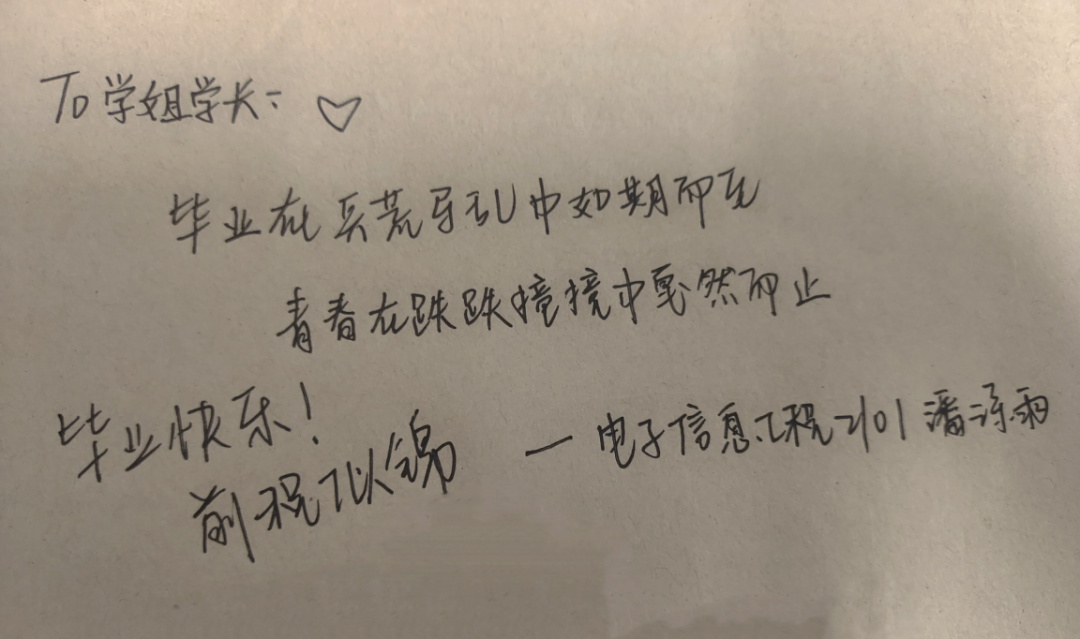 To 学姐学长: ♡
毕业在兵荒马乱中如期而至
青春在跌跌撞撞中戛然而止
毕业快乐!
前程似锦
— 电子信息工程2101 潘泺雨